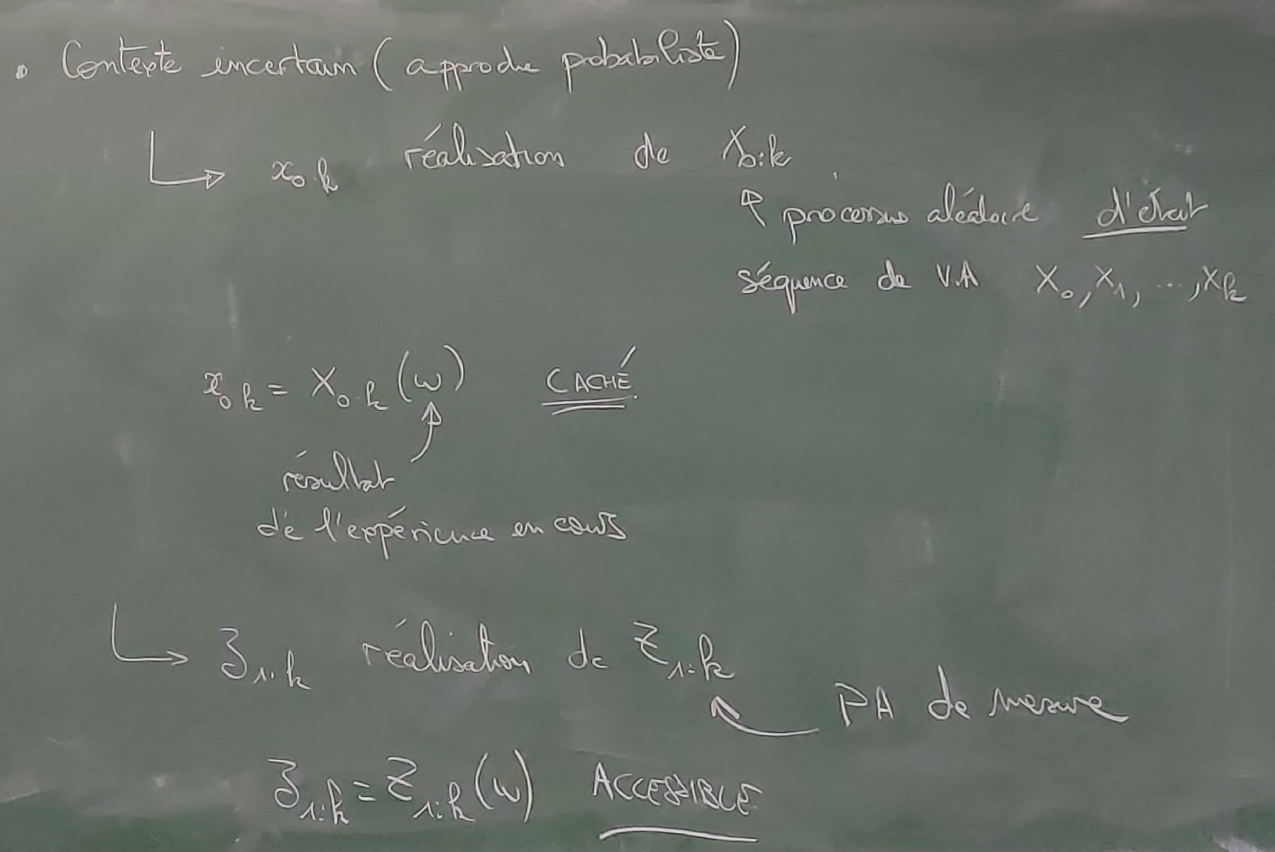 • Contexte incertain (approche probabiliste)
↳ x₀:k réalisation de X₀:k
↑ processus aléatoire d'état
séquence de V.A X₀, X₁, ..., Xk
x₀:k = X₀:k (ω) CACHÉ
résultat
de l'expérience en cours
↳ z₁:k réalisation de Z₁:k
PA de mesure
z₁:k = Z₁:k (ω) ACCESSIBLE